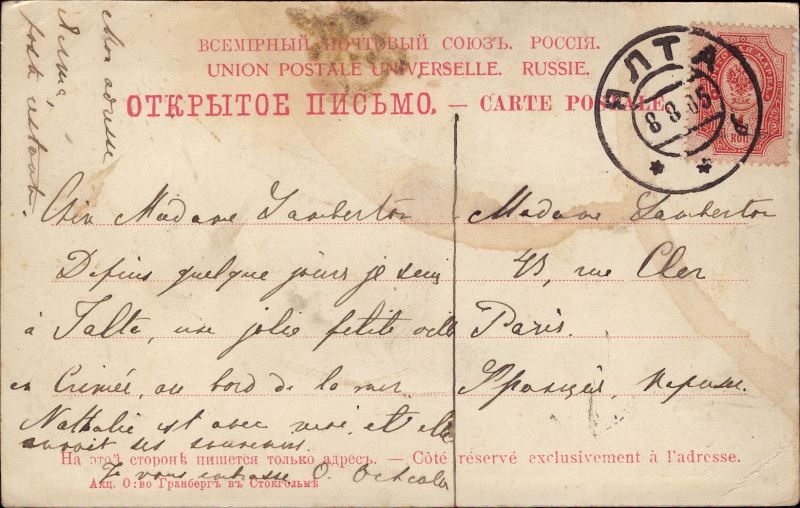 ВСЕМІРНЫЙ ПОЧТОВЫЙ СОЮЗЪ. РОССІЯ.
UNION POSTALE UNIVERSELLE. RUSSIE.
ОТКРЫТОЕ ПИСЬМО. — CARTE POSTALE.
ЯЛТА
8 8 05
Mon adresse
Ялта
poste restante
Chère Madame Lamberton
Depuis quelque jours je suis
à Jalta, une jolie petite ville
en Crimée, au bord de la mer.
Nathalie est avec moi et elle
envoit ses souvenirs.
Je vous embrasse O.
Madame Lamberton
43, rue Cler
Paris.
Франція, Парижъ.
На этой сторонѣ пишется только адресъ. — Côté réservé exclusivement à l'adresse.
Акц. О:во Гранбергъ въ Стокгольмѣ